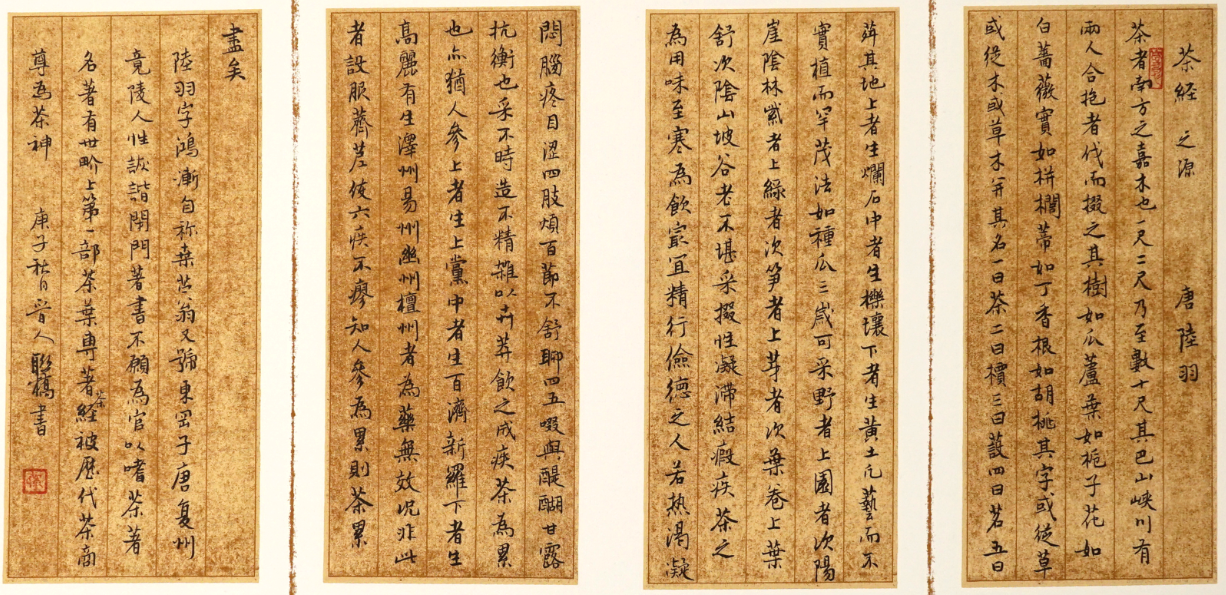 茶經 之源 唐 陸羽
茶者南方之嘉木也一尺二尺乃至數十尺其巴山峽川有
兩人合抱者伐而掇之其樹如瓜蘆葉如梔子花如
白薔薇實如栟櫚蒂如丁香根如胡桃其字或從草
或從木或草木并其名一曰茶二曰檟三曰蔎四曰茗五曰
荈其地上者生爛石中者生櫟壤下者生黄土凡藝而不
實植而罕茂法如種瓜三歲可采野者上園者次陽
崖陰林紫者上綠者次笋者上芽者次葉卷上葉
舒次陰山坡谷者不堪采掇性凝滯結瘕疾茶之
為用味至寒為飲最宜精行儉德之人若热渴凝
悶腦疼目澀四肢煩百節不舒聊四五啜與醍醐甘露
抗衡也采不時造不精雜以卉莽飲之成疾茶為累
也亦猶人參上者生上黨中者生百濟新羅下者生
高麗有生澤州易州幽州檀州者為藥無效况非此
者設服薺苨使六疾不瘳知人參為累則茶累
盡矣
陸羽字鴻漸自称桑苎翁又號東岡子唐复州
竟陵人性詼諧閉門著書不願為官以嗜茶著
名著有世界上第一部茶葉專著茶経被歷代茶商
尊為茶神 庚子秋月晉人聯橋書